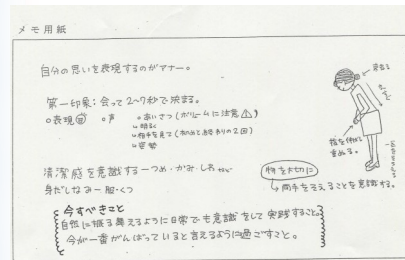 メモ用紙
自分の思いを表現するのがマナー。
第一印象:会って2~7秒で決まる。
○表現 ○声 ○あいさつ(ボリュームに注意⚠)
↳明るく
↳相手を見て(初めと終わりの2回)
↳姿勢
清潔感を意識する-つめ・かみ・しわなど
身だしなみ-服・くつ
物を大切に
↳両手をそえることを意識する。
指を伸ばして重ねる。
今すべきこと
自然に振る舞えるように日常でも意識をして実践すること。
今が一番がんばっていると言えるように過ごすこと。